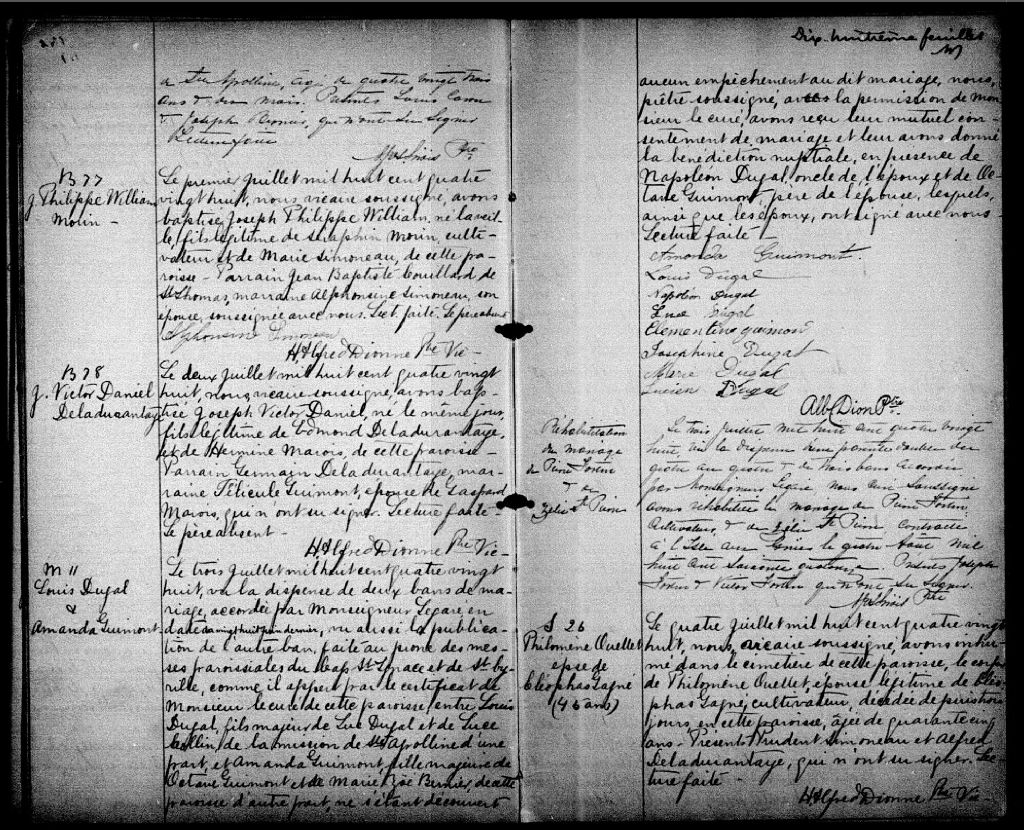 à Ste Apolline, agé de quatre vingt trois
ans & dix mois. Présents Louis Caron
& Joseph qui n'ont su signer
Lecture faite
Ptre
B 77
J. Philippe William
Morin -
Le premier juillet mil huit cent quatre
vingt huit, nous vicaire soussigné, avons
baptisé Joseph Philippe William, né la veil-
le, fils légitime de Séraphin Morin, culti-
vateur et de Marie Simoneau, de cette pa-
roisse - Parrain Jean Baptiste Couillard de
St Thomas, marraine Alphonsine Simoneau, son
épouse, soussignée avec nous. Lect. faite. Le père absent
Alphonsine Simoneau
H. Alfred Dionne Ptre Vic -
B 78
J. Victor Daniel
Deladurantaye
Le deux juillet mil huit cent quatre vingt
huit, nous vicaire soussigné, avons bap-
tisé Joseph Victor Daniel, né le même jour,
fils légitime de Edmond Deladurantaye,
et de Hermine Marois, de cette paroisse -
Parrain Germain Deladurantaye, mar-
raine Félicule Guimont, épouse de Gaspard
Marois, qui n'ont su signer. Lecture faite -
Le père absent -
H. Alfred Dionne Ptre Vic -
M 11
Louis Dugal
&
Amanda Guimont
Le trois juillet mil huit cent quatre vingt
huit, vu la dispense de deux bans de ma-
riage, accordée par Monseigneur Légaré, en
date du vingt huit juin dernier, vu aussi la publica-
tion de l'autre ban, faite au prone des mes-
ses paroissiales du Cap St Ignace et de St Cy-
rille, comme il appert par le certificat de
Monsieur le curé de cette paroisse, entre Louis
Dugal, fils majeur de Luc Dugal et de Luce
Collin, de la mission de Ste Apolline d'une
part, et Amanda Guimont, fille majeure de
Octave Guimont et de Marie Zoé Bernier, de cette
paroisse d'autre part, ne s'étant découvert
Dix-huitième feuillet
aucun empêchement au dit mariage, nous,
prêtre soussigné, avec la permission de mon-
sieur le curé, avons reçu leur mutuel con-
sentement de mariage et leur avons donné
la bénédiction nuptiale, en présence de
Napoléon Dugal, oncle de l'époux et de Oc-
tave Guimont, père de l'épouse, lesquels,
ainsi que les époux, ont signé avec nous -
Lecture faite -
Amanda Guimont.
Louis Dugal
Napoléon Dugal
Luce Dugal
Clementine guimond
Josephine Dugal
Dugal
Lucien Dugal
Alb. Dion Ptre.
Réhabilitation
du mariage
de Pierre Fortin
& de
Zélie St Pierre
Le trois Juillet mil huit cent quatre vingt
huit, vu la dispense d'une parenté double du
quatre au quatre & de trois bans accordée
par Monseigneur Légaré nous curé soussigné
avons réhabilité le mariage de Pierre Fortin
Cultivateur, & de Zélie St Pierre contracté
à l'Isle aux Grues le quatre Août mil
huit cent soixante quatorze. Présents Joseph
Fortin & Victor Fortin qui n'ont su signer.
Ptre
S 26
Philomène Ouellet
epse de
Cléophas Gagné
(45 ans)
Le quatre juillet mil huit cent quatre vingt
huit, nous, vicaire soussigné, avons inhu-
mé dans le cimetière de cette paroisse, le corps
de Philomène Ouellet, épouse légitime de Cléo-
phas Gagné, cultivateur, décédée depuis trois
jours, en cette paroisse, agée de quarante cinq
ans - Présents Prudent Simoneau et Alfred
Deladurantaye, qui n'ont su signer. Lec-
ture faite -
H. Alfred Dionne Ptre Vic -